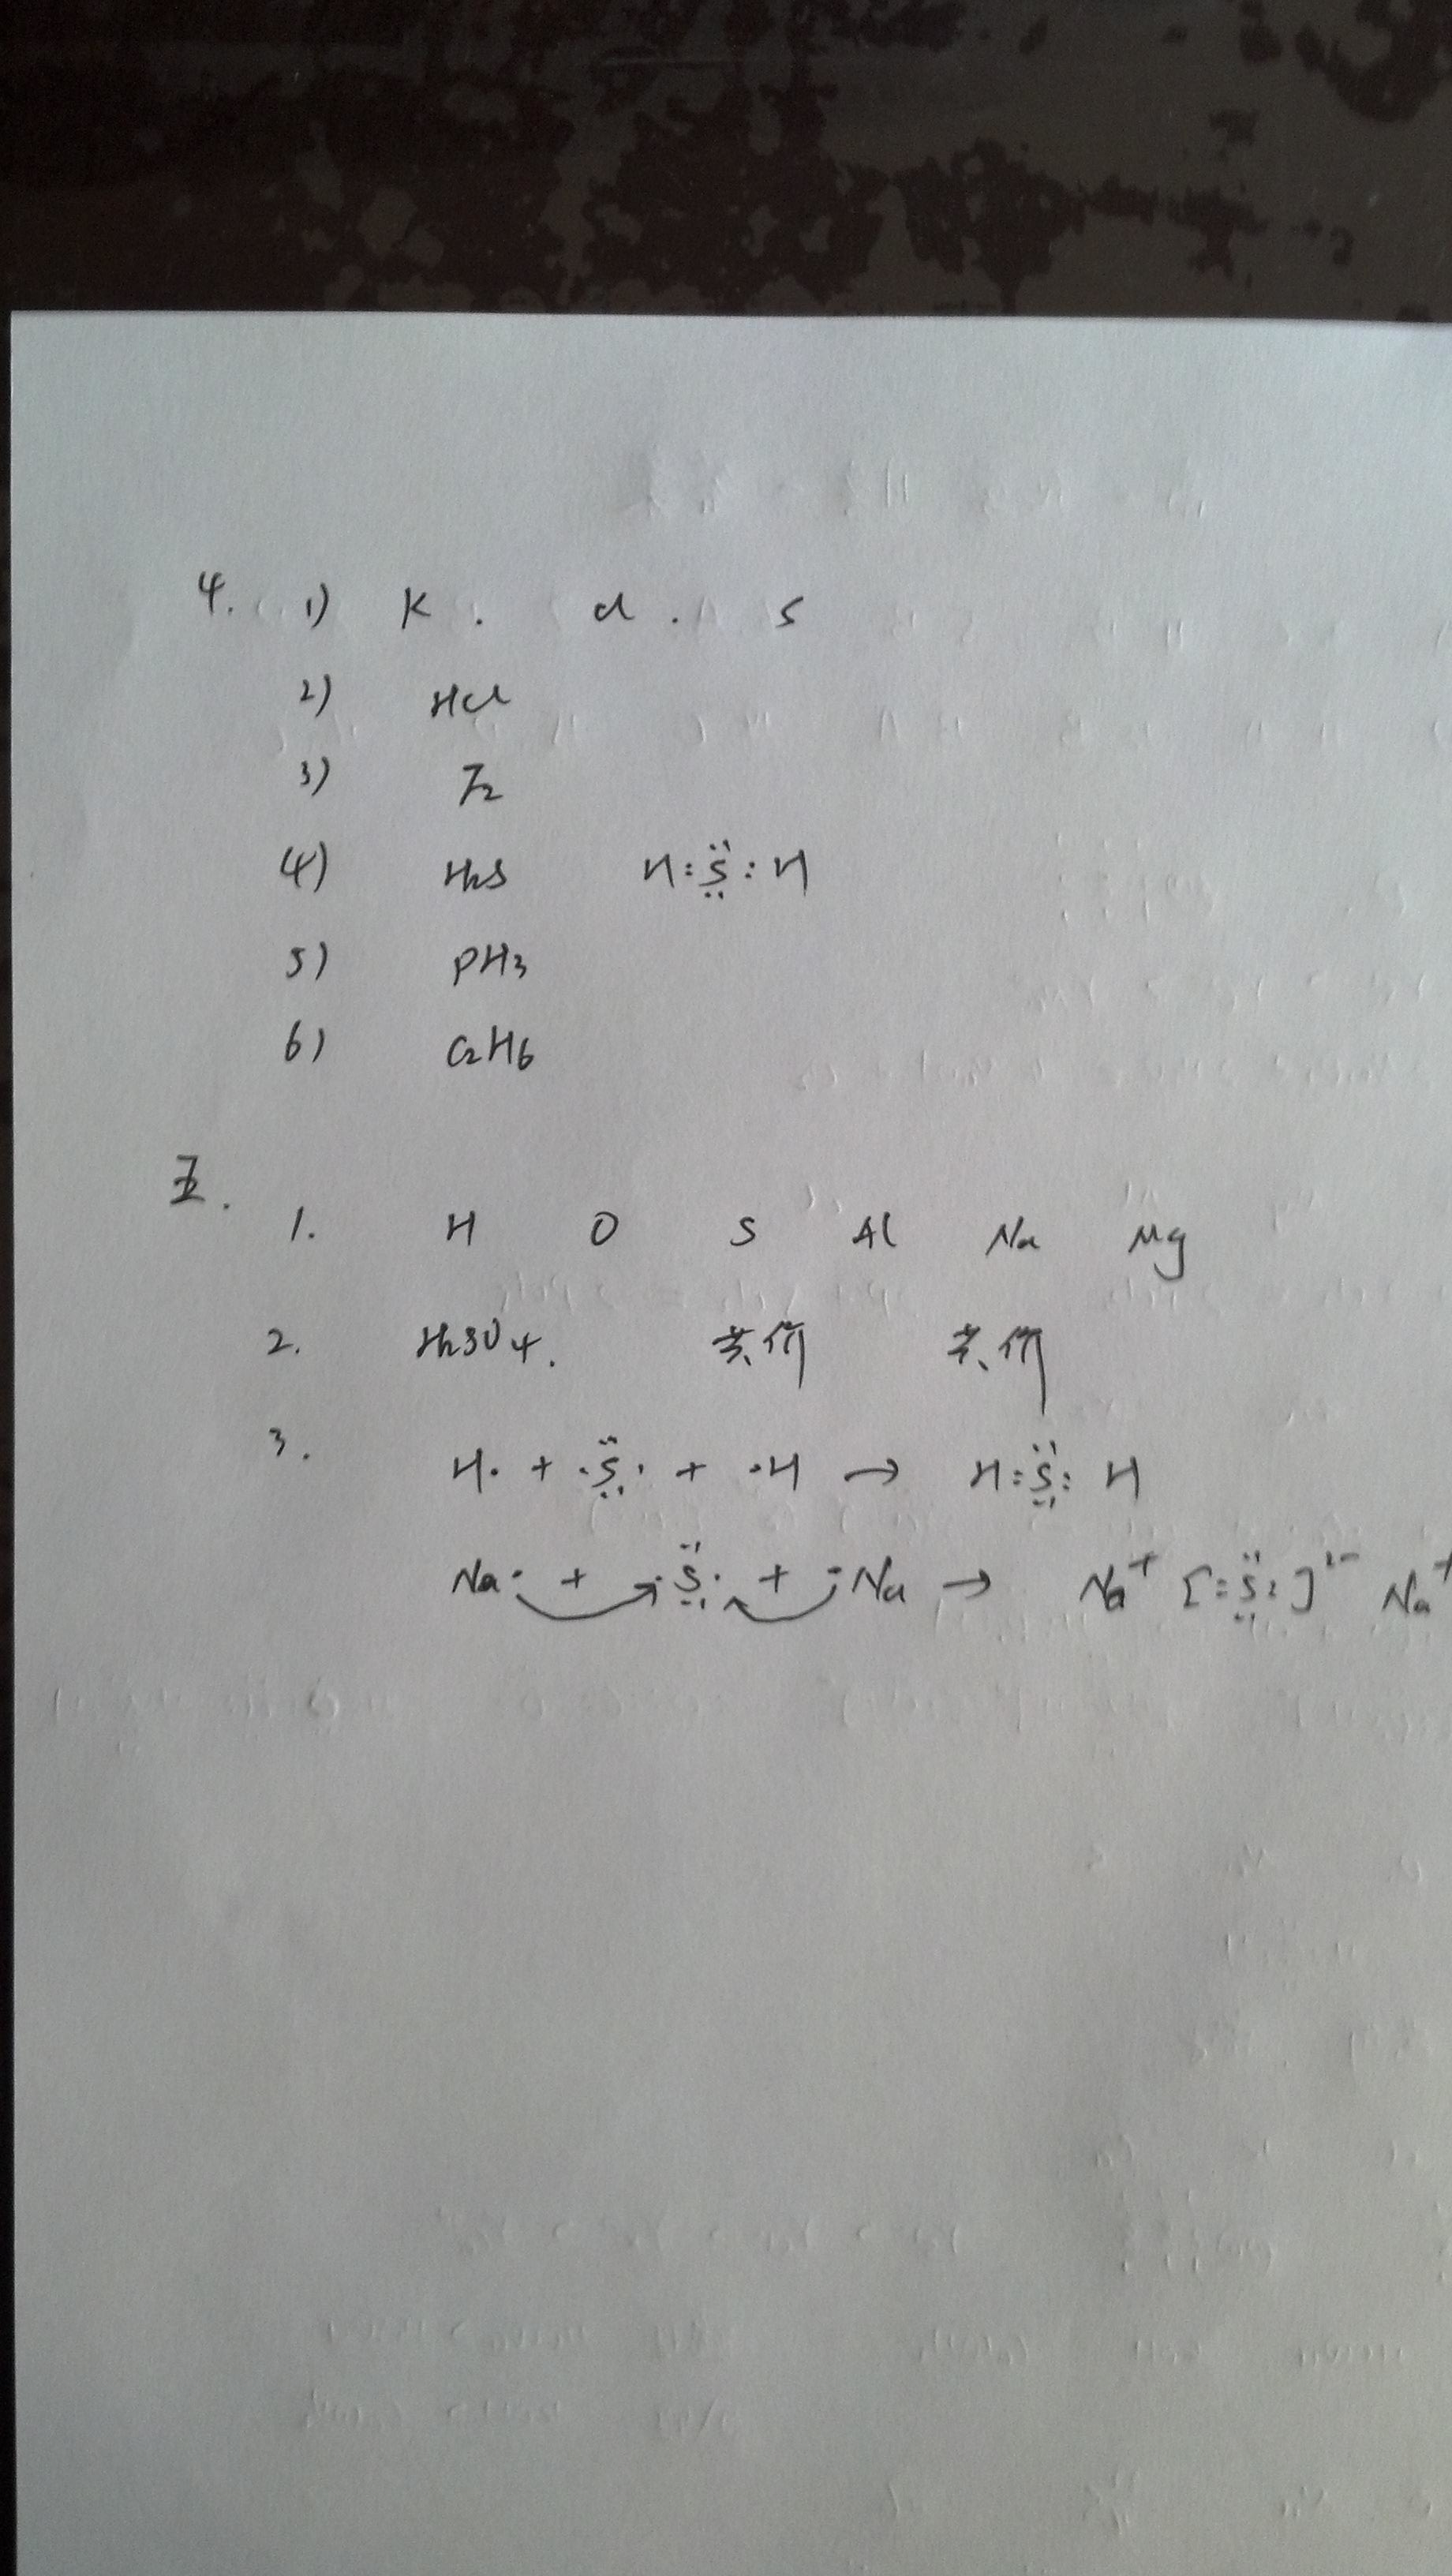 4. 1) K . Cl . S
2) HCl
3) F2
4) H2S H:S̈:H
5) PH3
6) C2H6
五.
1. H O S Al Na Mg
2. H2SO4. 共价 共价
3.
H· + ·S̈· + ·H → H:S̈:H
Na· + ·S̈· + ·Na → Na+ [:S̈:]2- Na+